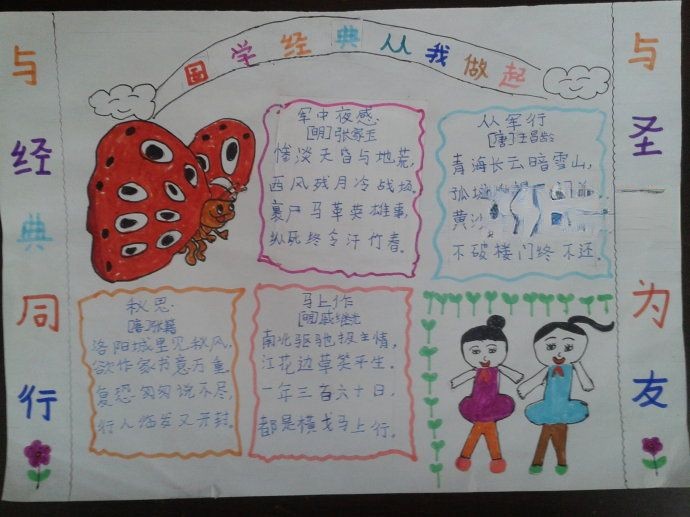 与经典同行
国学经典从我做起
与圣为友
军中夜感
[明]张家玉
惨淡天昏与地荒,
西风残月冷战场,
裹尸马革英雄事,
纵死终令汗竹香。
从军行
[唐]王昌龄
青海长云暗雪山,
孤城
黄沙
不破楼门终不还。
秋思
[唐]张籍
洛阳城里见秋风,
欲作家书意万重
复恐匆匆说不尽,
行人临发又开封。
马上作
[明]戚继光
南北驱驰报主情,
江花边草笑平生。
一年三百六十日,
都是横戈马上行。